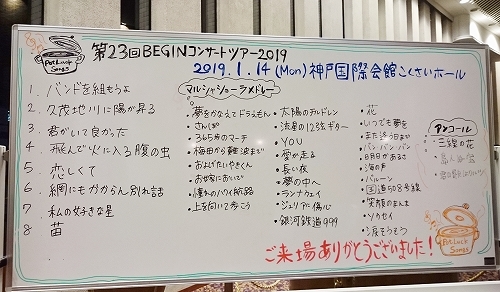 Pot Luck Songs
第23回BEGINコンサートツアー2019
2019.1.14(Mon)神戸国際会館こくさいホール
1. バンドを組もうよ
2. 久茂地川に陽が昇る
3. 君がいて良かった
4. 飛んで火に入る腹の虫
5. 恋しくて
6. 網にもかからん別れ話
7 私の好きな星
8 苗
マルシャショーラメドレー
・夢をかなえてドラえもん
・さんぽ
・365歩のマーチ
・梅田から難波まで
・およげたいやきくん
・お世話において
・憧れのハワイ航路
・上を向いて歩こう
・太陽のチルドレン
・流星の12弦ギター
・YOU
・愛が走る
・長い夜
・夢の中へ
・ランナウェイ
・ジュリアに傷心
・銀河鉄道999
・花
・いつでも夢を
・また逢う日まで
・バン・バン・バン
・明日があるさ
・海の声
・バルーン
・国道508号線
・笑顔のまんま
・ソウセイ
・涙そうそう
アンコール
・三線の花
ご来場ありがとうございました!
Pot Luck Songs